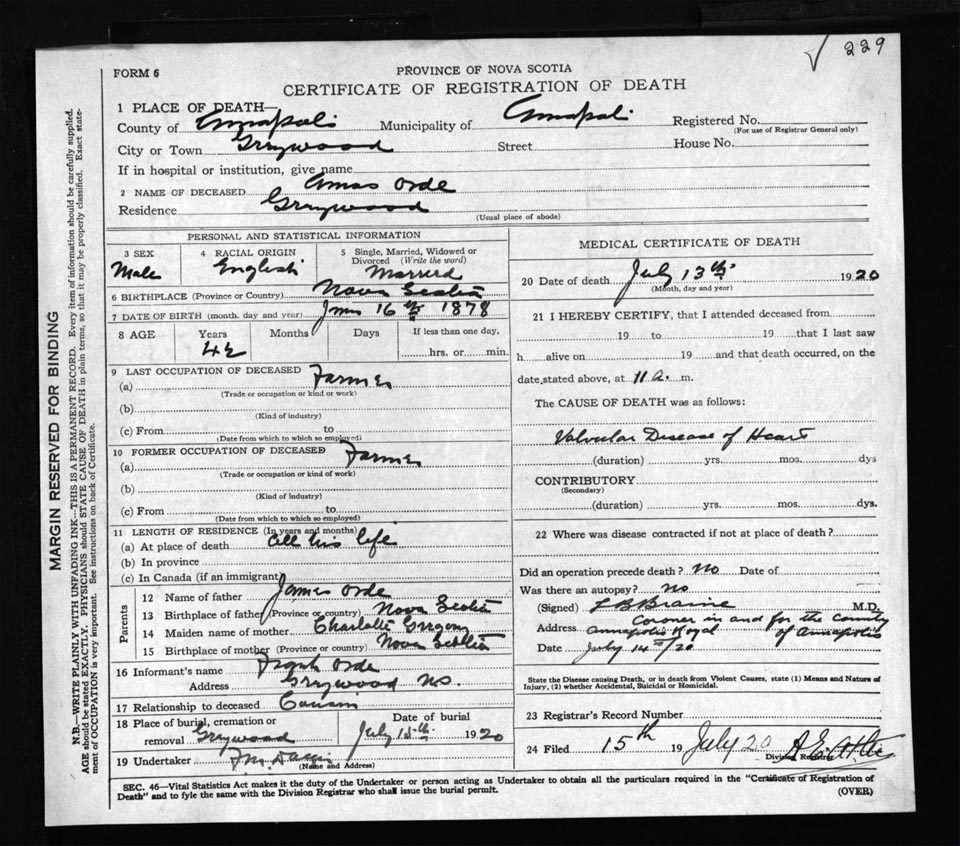 √ 229
FORM 6
PROVINCE OF NOVA SCOTIA
CERTIFICATE OF REGISTRATION OF DEATH
1 PLACE OF DEATH—
County of Annapolis Municipality of Annapolis Registered No.
(For use of Registrar General only)
City or Town Greywood Street House No.
If in hospital or institution, give name
2 NAME OF DECEASED Amos Orde
Residence Greywood
(Usual place of abode)
PERSONAL AND STATISTICAL INFORMATION
3 SEX 4 RACIAL ORIGIN 5 Single, Married, Widowed or
Divorced (Write the word)
Male English Married
6 BIRTHPLACE (Province or Country) Nova Scotia
7 DATE OF BIRTH (month, day and year) 16th 1878
8 AGE Years Months Days If less than one day,
42 hrs. or min.
9 LAST OCCUPATION OF DECEASED
(a) Farmer
(Trade or occupation or kind or work)
(b)
(Kind of industry)
(c) From to
(Date from which to which so employed)
10 FORMER OCCUPATION OF DECEASED
(a) Farmer
(Trade or occupation or kind of work)
(b)
(Kind of industry)
(c) From to
(Date from which to which so employed)
11 LENGTH OF RESIDENCE (In years and months)
(a) At place of death all his life
(b) In province
(c) In Canada (if an immigrant)
Parents
12 Name of father James Orde
13 Birthplace of father (Province or country) Nova Scotia
14 Maiden name of mother Charlotte Gregory
15 Birthplace of mother (Province or country) Nova Scotia
16 Informant's name Frank Orde
Address Greywood NS.
17 Relationship to deceased Cousin
18 Place of burial, cremation or Date of burial
removal Greywood July 15th 1920
19 Undertaker F.M.
(Name and Address)
MEDICAL CERTIFICATE OF DEATH
20 Date of death July 13th 1920
(Month, day and year)
21 I HEREBY CERTIFY, that I attended deceased from
19 to 19 that I last saw
h alive on 19 and that death occurred, on the
date stated above, at 11 a. m.
The CAUSE OF DEATH was as follows:
Valvular Disease of Heart
(duration) yrs. mos. dys
CONTRIBUTORY
(Secondary)
(duration) yrs. mos. dys.
22 Where was disease contracted if not at place of death?
Did an operation precede death? No Date of
Was there an autopsy? No
(Signed) L B Braine M.D.
Coroner in and for the county
Address Annapolis Royal of Annapolis
Date July 14th/20
State the Disease causing Death, or in death from Violent Causes, state (1) Means and Nature of
Injury, (2) whether Accidental, Suicidal or Homicidal.
23 Registrar's Record Number
24 Filed 15th 19 July 20
Division Registrar
SEC. 46—Vital Statistics Act makes it the duty of the Undertaker or person acting as Undertaker to obtain all the particulars required in the "Certificate of Registration of
Death" and to fyle the same with the Division Registrar who shall issue the burial permit. (OVER)
MARGIN RESERVED FOR BINDING
N.B.—WRITE PLAINLY WITH UNFADING INK—THIS IS A PERMANENT RECORD. Every item of information should be carefully supplied.
AGE should be stated EXACTLY. PHYSICIANS should STATE CAUSE OF DEATH in plain terms, so that it may be properly classified. Exact state-
ment of OCCUPATION is very important. See instructions on back of Certificate.